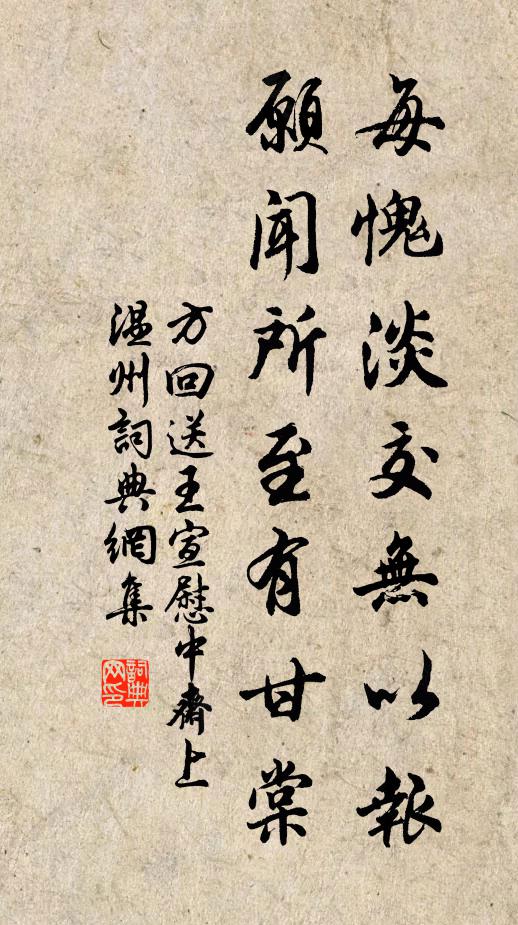 每愧淡交無以報
願聞所至有甘棠
方回送王宣慰中齋上
溫州詞典網集
詞典网印